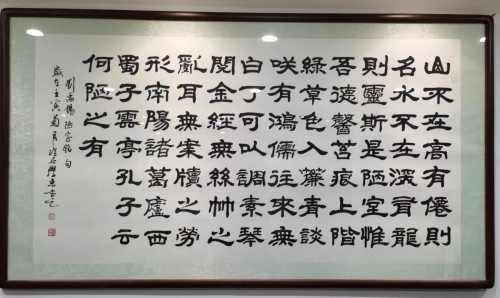 山不在高有僊則
名水不在深有龍
則靈斯是陋室惟
吾德馨苔痕上階
綠草色入簾青談
咲有鴻儒往來無
白丁可以調素琴
閱金經無絲竹之
亂耳無案牘之勞
形南陽諸葛廬西
蜀子雲亭孔子云
何陋之有
劉禹錫陋室銘句
歲在壬寅菊月